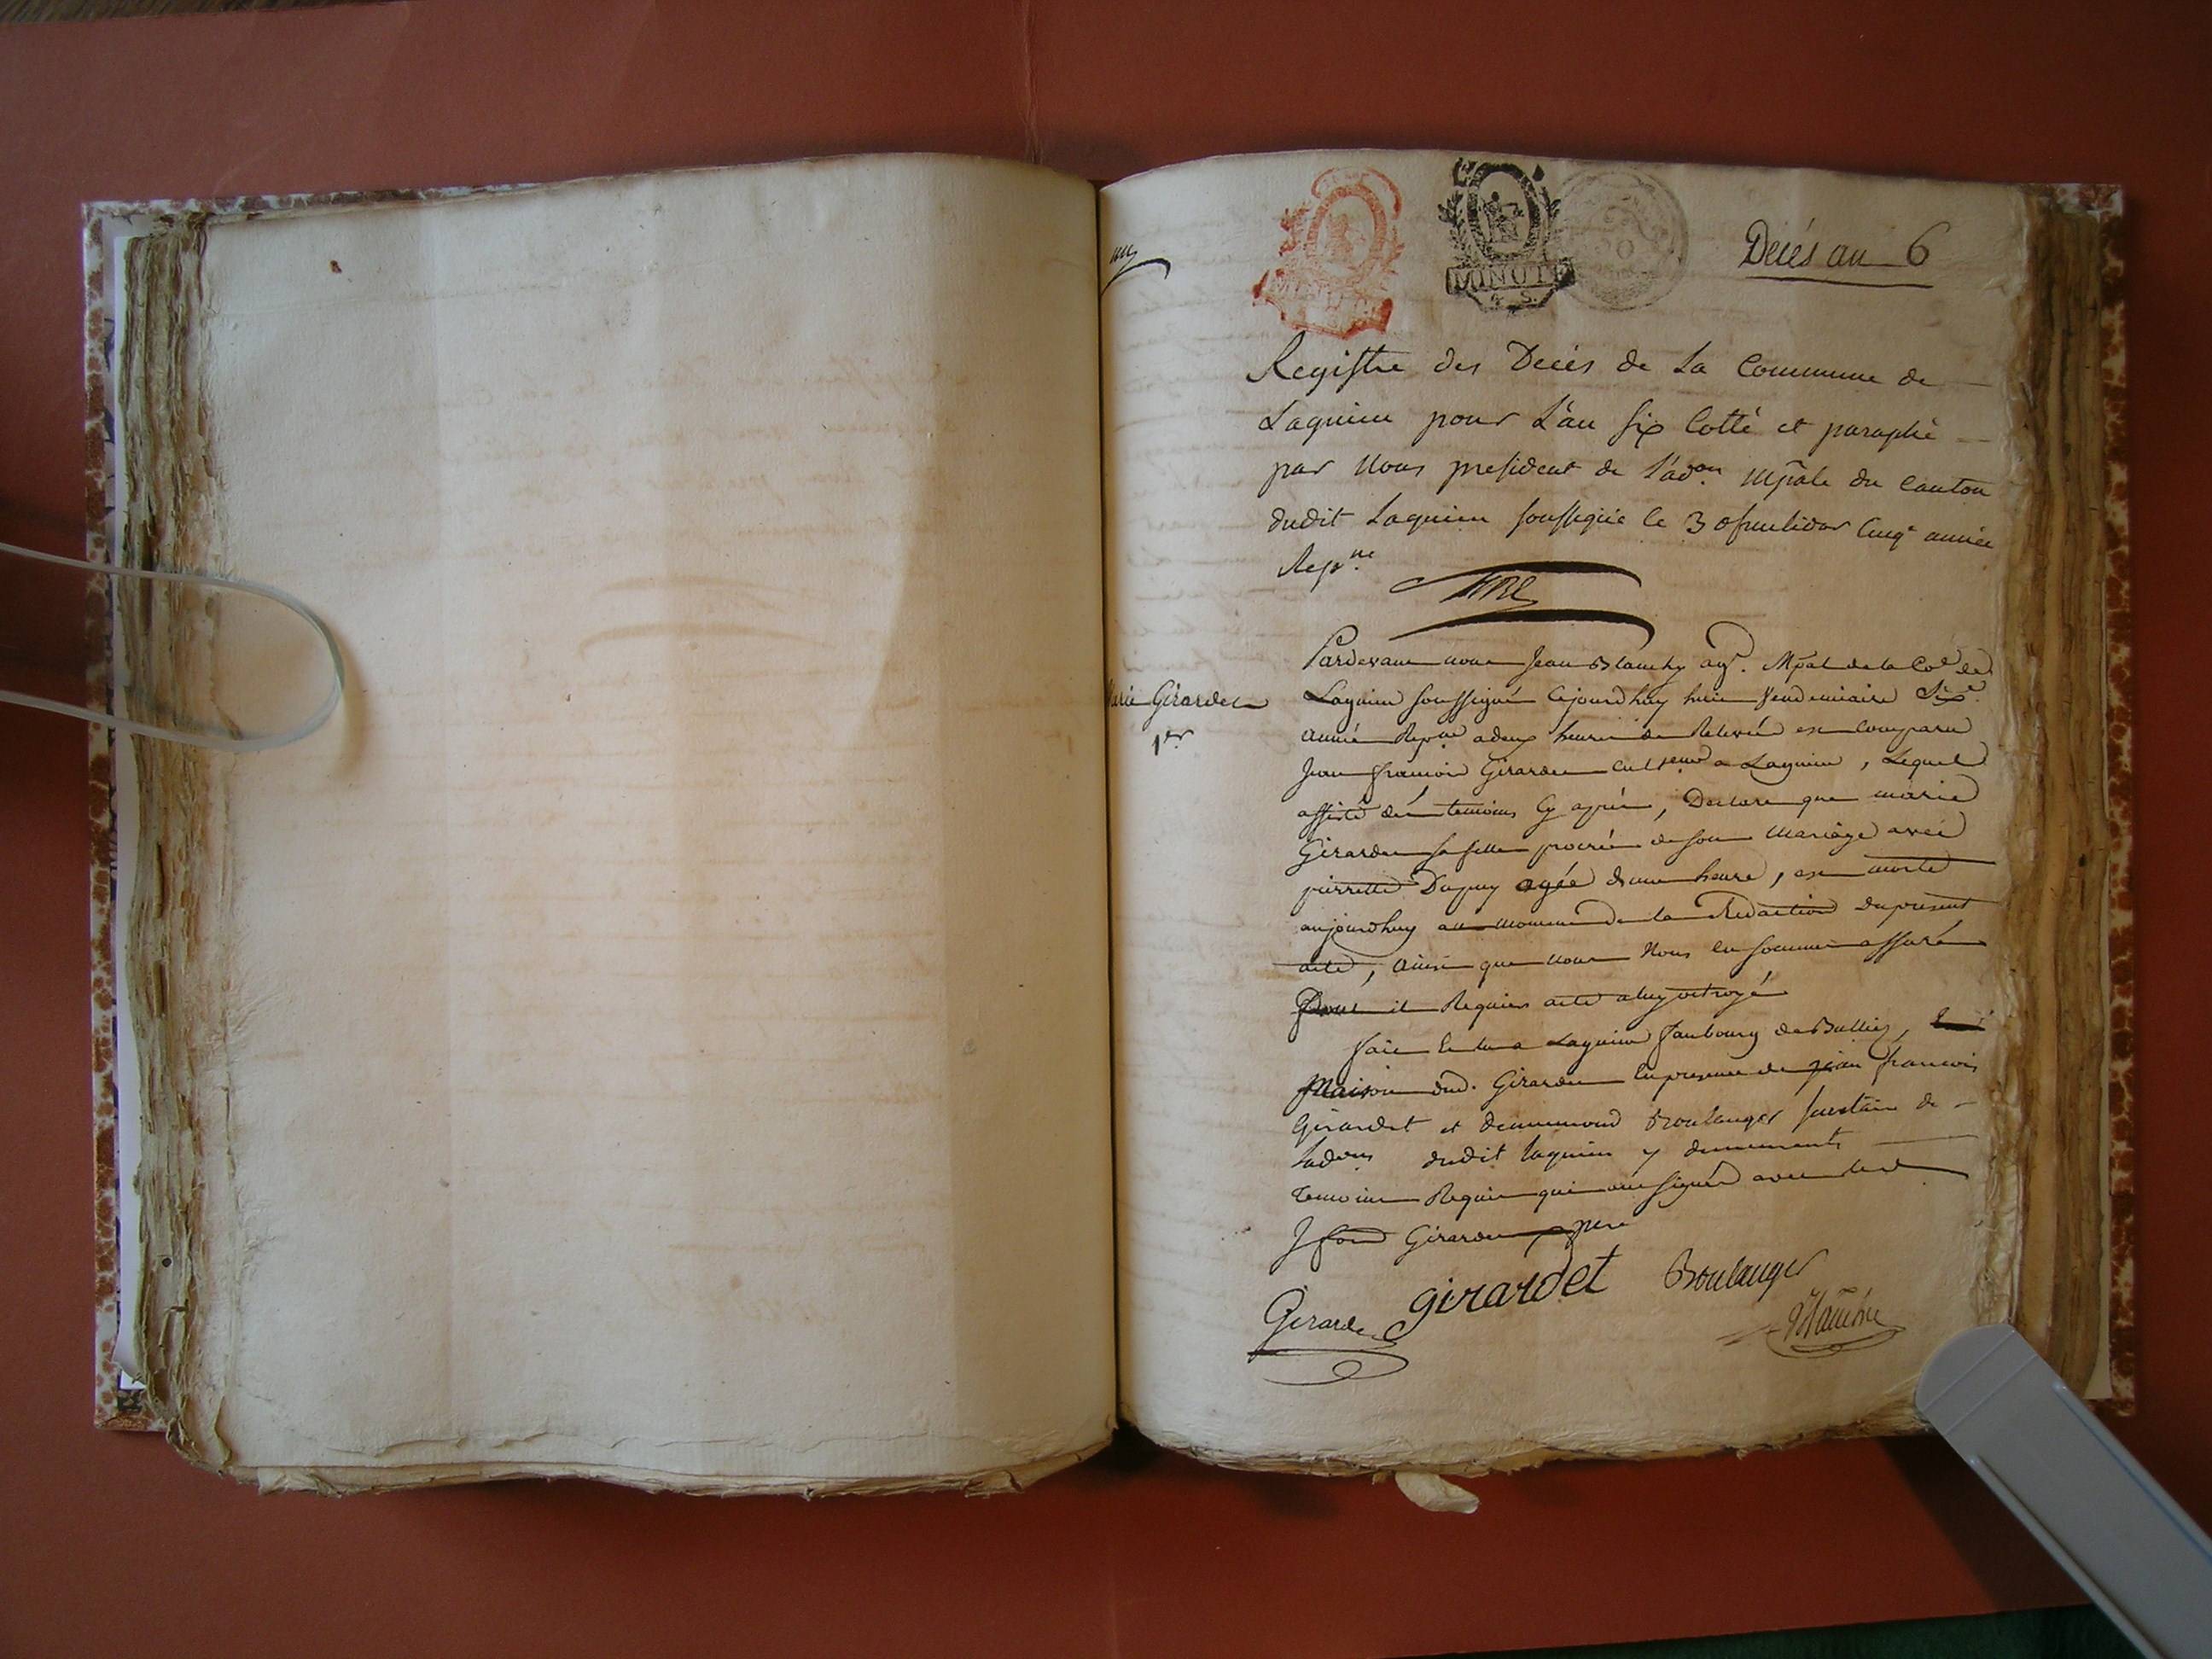 Decés an 6
MINUTE
4 S.
Registre des Decès de La Commune de
Lagnieu pour L'an six Cotté et paraphé
par Nous president de l'ad.on Mpale du Canton
dudit Lagnieu soussigné le 30 fructidor Cinq.e année
Rep.ne
Marie Girardet
1er
Pardevant nous Jean Blanchy ag.t Mpal de la Co.e de
Lagnieu soussigné Cejourdhuy huit Vendemiaire Six.e
année Rep.ne a deux heures de Relevée est Comparu
Jean francois Girardet Cult.eur a Lagnieu, Lequel
assisté des temoins Cy après, Declare que marie
Girardet sa fille procréé de son Mariage avec
pierrette Dupuy agée d'une heure, est morte
aujourdhuy au moment de la Redaction du present
acte, ainsi que nous Nous en sommes assuré
Dont il Requiert acte a luy octroyé
fait et lu a Lagnieu faubourg de
Maison dud. Girardet en presence de jean francois
Girardet et Boulanger secretaire de
Lad.on dudit lagnieu y demeurants
temoins Requis qui ont signés avec led.
J f.ois Girardet pere
Girardet girardet Boulanger